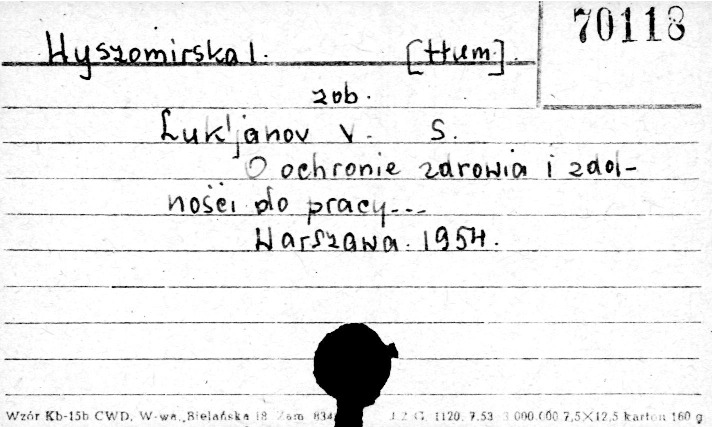 70118
Wyszomirska I. [tłum].
zob.
Luk'janov V. S.
O ochronie zdrowia i zdol-
ności do pracy...
Warszawa. 1954.
Wzór Kb-15b CWD, W-wa, Bielańska 18 Zam. 834 J.Z.G. 1120. 7.53 3 000 000 7,5×12,5 karton 160 g